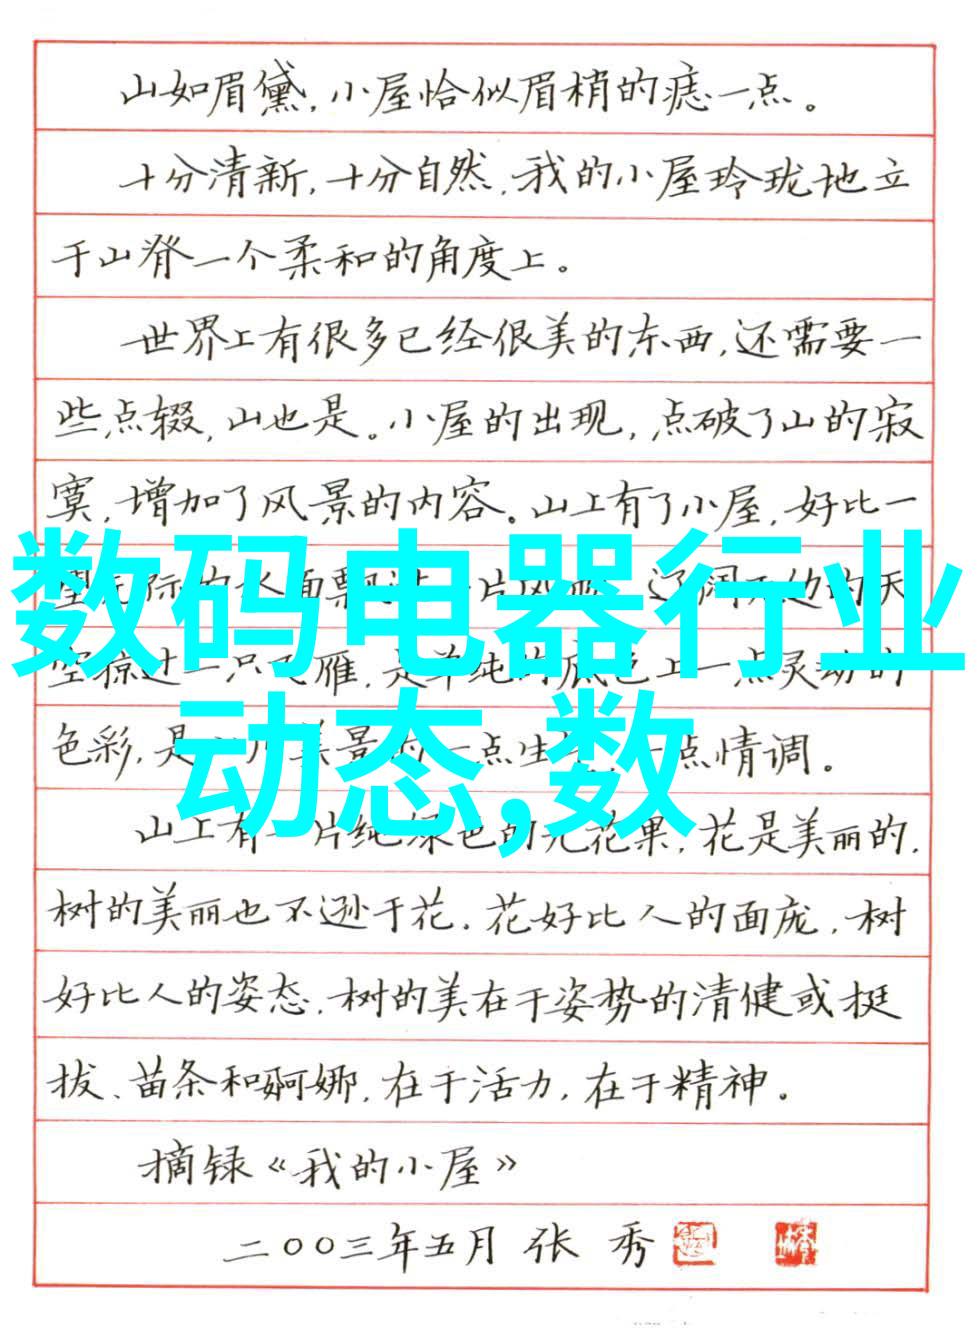 山如眉黛,小屋恰似眉梢的痣一点。
十分清新,十分自然,我的小屋玲珑地立
于山脊一个柔和的角度上。
世界上有很多已经很美的东西,还需要一
些点缀,山也是。小屋的出现,点破了山的寂
寞,增加了风景的内容。山上有了小屋,好比一
数码电器行业
空掠过一只飞雁,是单纯的底色上一点灵动的
色彩,是
点情调。
动态,数
山上有一片纯绿色的无花果,花是美丽的,
树的美丽也不逊于花。花好比人的面庞,树
好比人的姿态。树的美在于姿势的清健或挺
拔、苗条和婀娜,在于活力,在于精神。
摘录《我的小屋》
二〇〇三年五月 张 秀